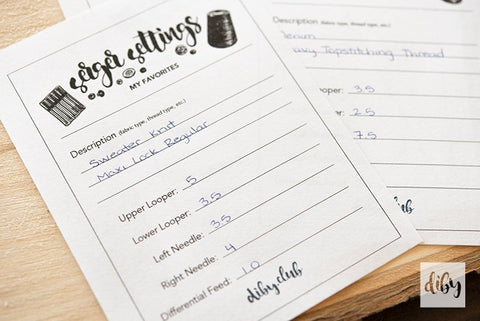 serger settings
MY FAVORITES
Description (fabric type, thread type, etc.)
Sweater Knit
Maxi Lock Regular
Upper Looper: 5
Lower Looper: 3.5
Left Needle: 3.5
Right Needle: 4
Differential Feed: 1.0
diby.club
Description (fabric type, thread type, etc.)
Topstitching Thread
ooper: 3.5
ooper: 2.5
7.5
club
diby